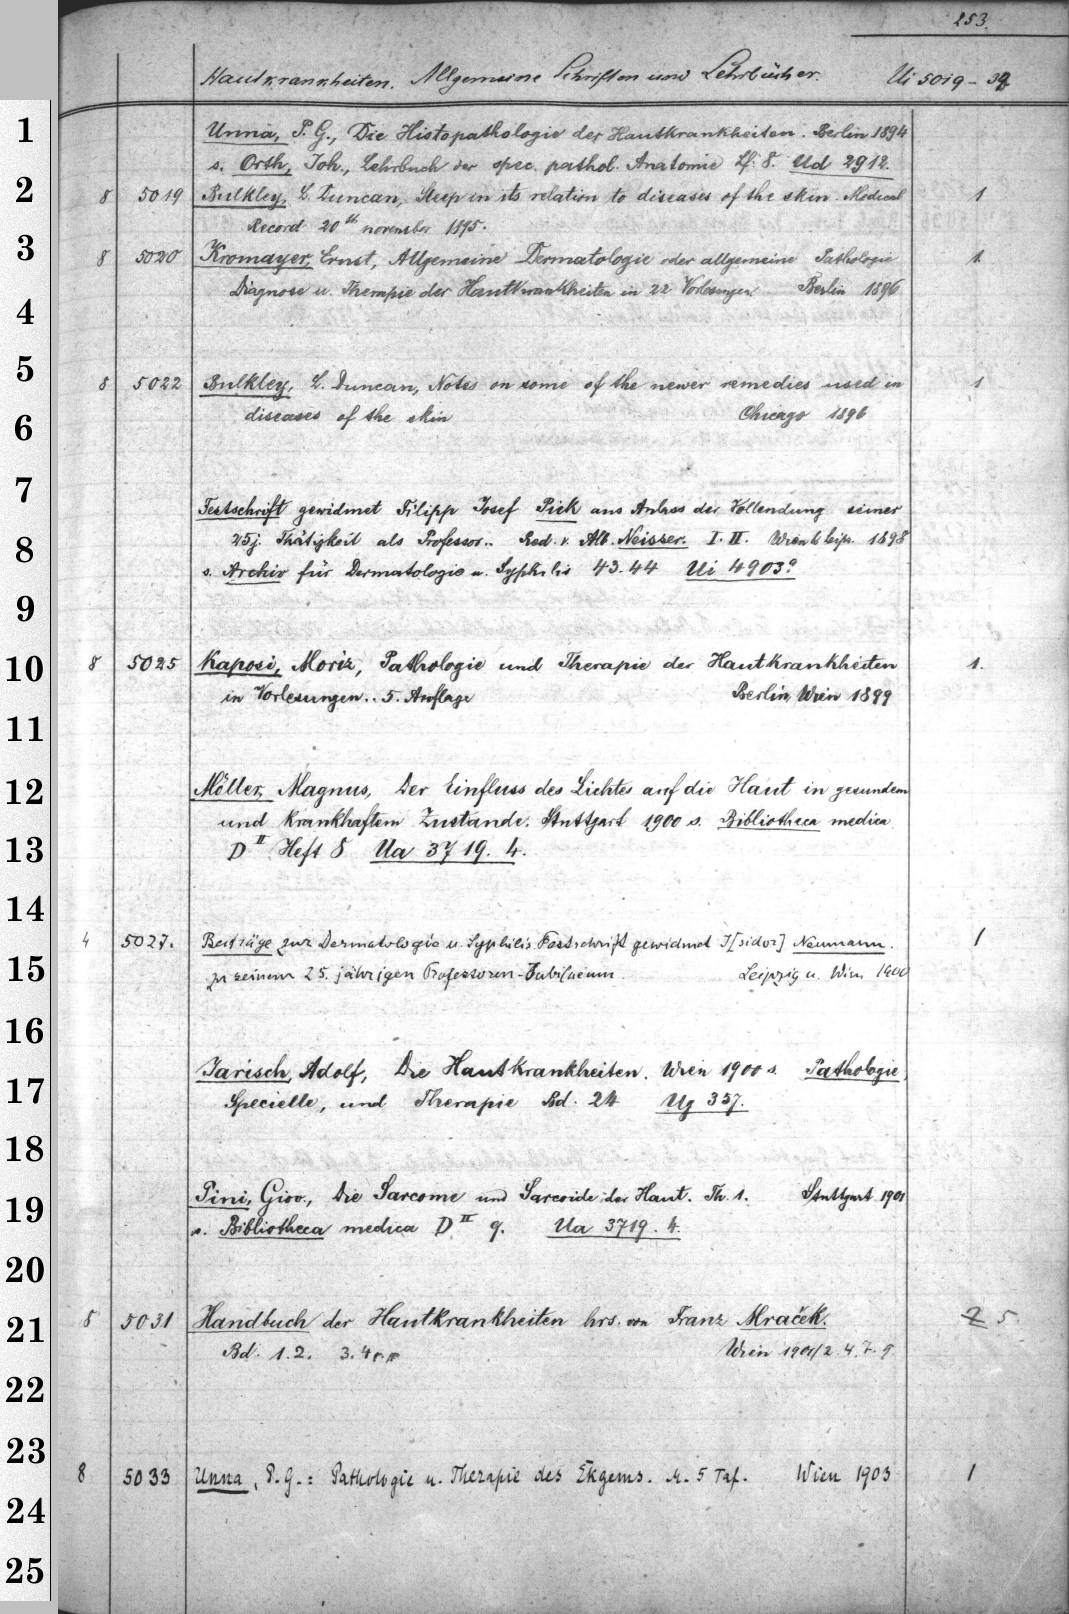 253.
Hautkrankheiten. Allgemeine Schriften und Lehrbücher. Ui 5019-39
1 Unna, P. G., Die Histopathologie der Hautkrankheiten. Berlin 1894
s. Orth, Joh., Lehrbuch der spec. pathol. Anatomie Lf. 8. Ud 2912.
2 8 5019 Bulkley, L. Duncan, Sleep in its relation to diseases of the skin. Medical 1
Record 20th november 1895.
3 8 5020 Kromayer, Ernst, Allgemeine Dermatologie oder allgemeine Pathologie 1
4 Diagnose u. Therapie der Hautkrankheiten in 22 Vorlesungen. Berlin 1896
5 8 5022 Bulkley, L. Duncan, Notes on some of the newer remedies used in 1
6 diseases of the skin Chicago 1896
7 Festschrift gewidmet Filipp Josef Pick aus Anlass der Vollendung seiner
8 25j. Thätigkeit als Professor.. Red. v. Alb. Neisser. I. II. Wien u. Leipz. 1898
s. Archiv für Dermatologie u. Syphilis 43.44 Ui 4903a
9
10 8 5025 Kaposi, Moriz, Pathologie und Therapie der Hautkrankheiten 1.
in Vorlesungen.. 5. Auflage Berlin, Wien 1899
11
12 Möller, Magnus, Der Einfluss des Lichtes auf die Haut in gesundem
und krankhaftem Zustande. Stuttgart 1900 s. Bibliotheca medica
13 D II Heft 8 Ua 3719. 4.
14
4 5027. Beiträge zur Dermatologie u. Syphilis. Festschrift gewidmet I[sidor] Neumann. 1
15 zu seinem 25. jährigen Professoren-Jubilaeum. Leipzig u. Wien 1900
16
17 Jarisch, Adolf, Die Hautkrankheiten. Wien 1900 s. Pathologie,
Specielle, und Therapie Bd. 24 Ug 357.
18
19 Pini, Giov., Die Sarcome und Sarcoide der Haut. Th. 1. Stuttgart 1901
s. Bibliotheca medica D II 9. Ua 3719. 4.
20
21 8 5031 Handbuch der Hautkrankheiten hrs. von Franz Mraček. 2 5
Bd. 1.2. 3. 4 Wien 1901/2. 4. 7. 9
22
23 8 5033 Unna, P. G.: Pathologie u. Therapie des Ekzems. M. 5 Taf. Wien 1903 1
24
25